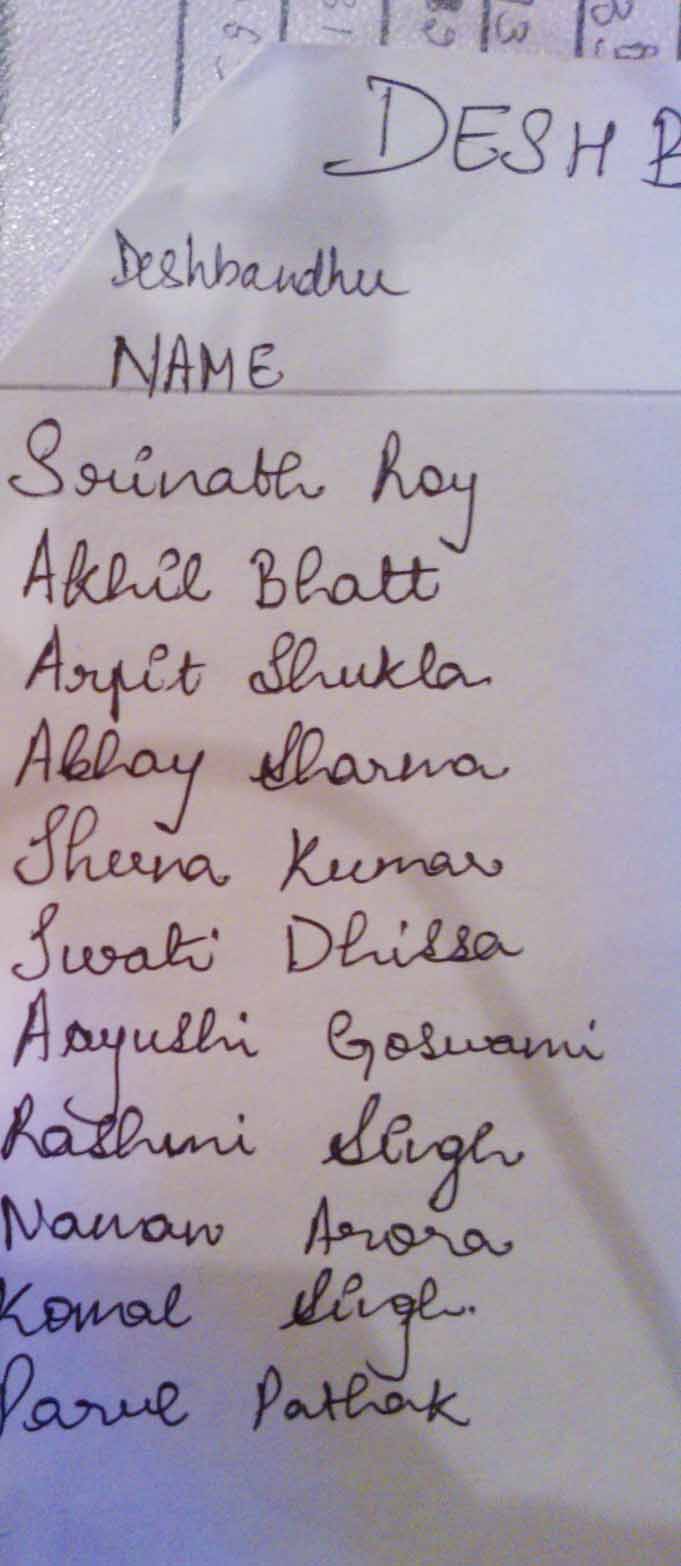 DESH B
Deshbandhu
NAME
Srinath Roy
Akhil Bhatt
Arpit Shukla
Abhay Sharma
Sheena Kumar
Swati Dhissa
Aayushi Goswami
Rashmi Singh
Naman Arora
Komal Singh.
Parul Pathak